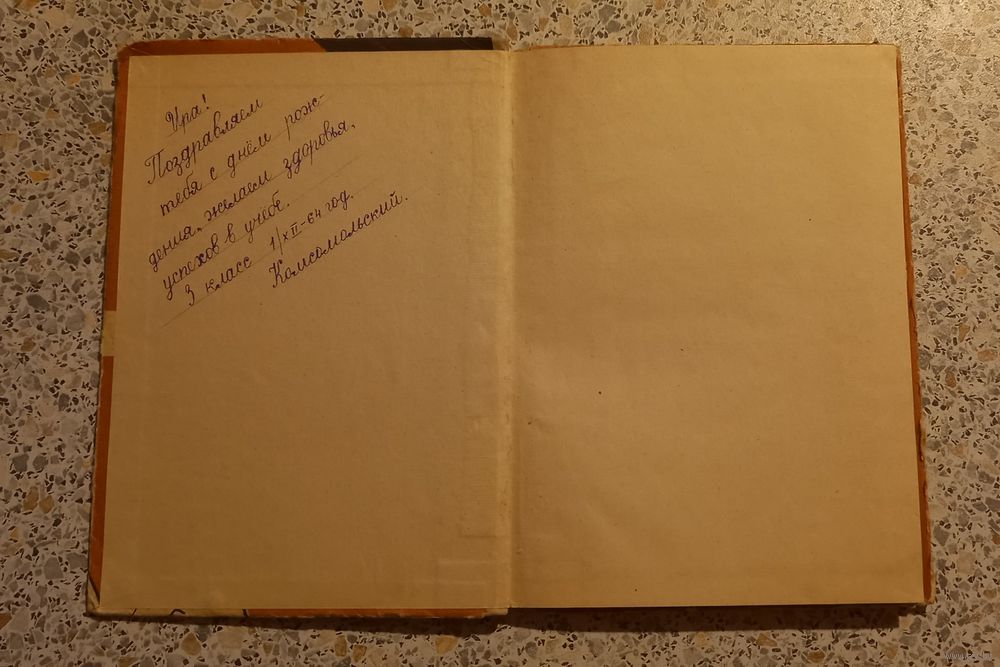 Ура!
Поздравляем
тебя с днём рож-
дения, желаем здоровья,
успехов в учёбе.
3 класс 1/XII-64 год.
Комсомольский.